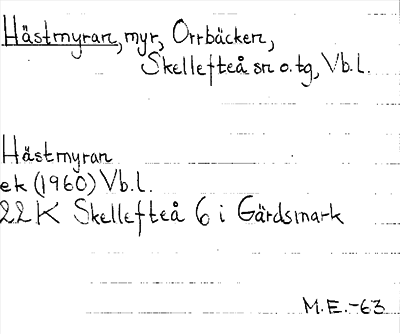 Hästmyran, myr, Orrbäcken,
Skellefteå sn o. tg, Vb. l.
Hästmyran
ek (1960) Vb. l.
22 K Skellefteå 6 i Gärdsmark
M.E.-63